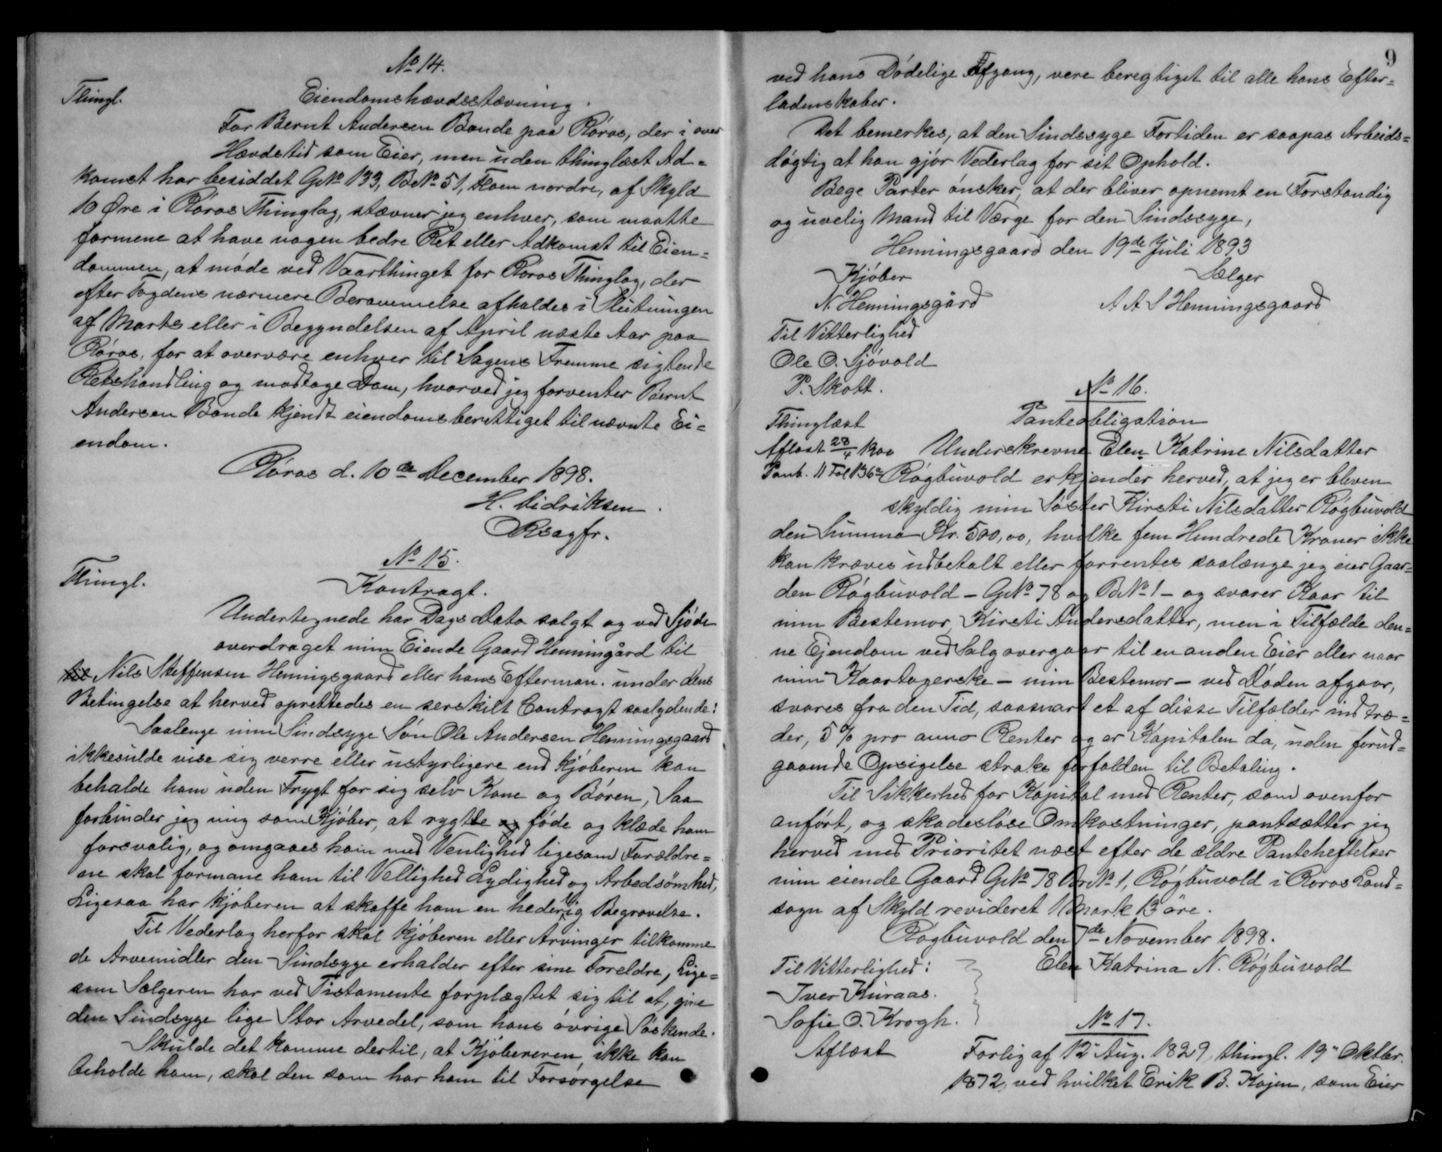 No 14.
Thingl.
Eiendomshævdsstævning.
For Bernt Andersen Bonde paa Røros, der i over
Hævdstid som Eier, men uden thinglæst Ad-
komst har besiddet G.No 133, B.No 51, Floen nordre, af Skyld
10 Øre i Røros Thinglag, stævner jeg enhver, som maatte
formene at have nogen bedre Ret eller Adkomst til Eien-
dommen, at møde ved Vaarthinget for Røros Thinglag, der
efter Fogdens nærmere Berammelse afholdes i Slutningen
af Marts eller i Begyndelsen af April næste Aar paa
Røros, for at overvære enhver til Sagens Fremme sigtende
Retshandling og modtage Dom, hvorved jeg forventer Bernt
Andersen Bonde kjendt eiendomsberettiget til nævnte Ei-
endom.
Røros d. 10de December 1898.
H. Didriksen.
Osagfr.
No 15.
Thingl.
Kontragt.
Undertegnede har Dags Dato solgt og ved Sjøde
overdraget min Eiende Gaard Henningård til
til Nils Steffensen Henningsgaard eller hans Efterman. under dens
Betingelse at herved oprettedes en serskilt Contragt saalydende:
Saalenge min Sindsyge Søn Ole Andersen Henningsgaard
ikkesulde vise sig verre eller ustyrligere end kjøberen kan
beholde ham uden Frygt for sig selv Kone og Børen, Saa
forbinder jeg mig som Kjøber, at rygtte og føde og klæde ham
forsvalig, og omgaaes ham med Venlighed ligesom Forældre-
ne skal formane ham til Vellighed Lydighed og Arbedsømhed,
Ligesaa har kjøberen at skaffe ham en hederlig Begravelse.
Til Vederlag herfor skal kjøberen eller Arvinger tilkomme
de Arvemidler den Sindsyge erholder efter sine Foreldre, Lige-
som Sælgeren har ved Tistamente forplægtet sig til at, give
den Sindsyge lige Stor Arvedel, som hans øvrige Søskende.
Skulde det komme dertil, at Kjøbereren ikke kan
beholde ham, skal den som har ham til Forsørgelse
9
ved hans Dødelige Afgang, vere beregtiget til alle hans Efter-
ladenskaber.
Det bemerkes, at den Sindssyge Fortiden er saapas Arbeids-
døgtig at han gjør Vederlag for sit Ophold.
Bege Parter ønsker, at der bliver opnemt en Forstandig
og uvelig Mand til Værge for den Sindssyge,
Henningsgaard den 19de Juli 1893
Kjøber
Sælger
N. Henningsgård
A A S Henningsgaard
Til Vitterlighed
Ole O. Sjøvold
P. Skott.
No 16.
Thinglæst
Panteobligation
Aflæst 28/4 1900
Pantb. 11 Fol 136
Underskrevne Elen Katrine Nilsdatter
Røgbuvold erkjender herved, at jeg er bleven
skyldig min Søster Kirsti Nilsdatter Røgbuvold
den Summa Kr. 500,00, hvilke fem Hundrede Kroner ikke
kan kræves udbetalt eller forrentes saalænge jeg eier Gaar-
den Røgbuvold - G.No 78 og B.No 1 - og svarer Kaar til
min Bestemor Kirsti Andersdatter, men i Tilfælde den-
ne Ejendom ved Salg overgaar til en anden Eier eller naar
min Kaartagerske - min Bestemor - ved Døden afgaar,
svares fra den Tid, saasnart et af disse Tilfælder indtræ-
der, 5% pro anno Renter og er Kapitalen da, uden forud-
gaaende Opsigelse straks forfalden til Betaling.
Til Sikkerhed for Kapital med Renter, som ovenfor
anført, og skadesløse Omkostninger, pantsætter jeg
herved med Prioritet næst efter de ældre Panteheftelser
min eiende Gaard G.No 78 Br.No 1, Røgbuvold i Røros Land-
sogn af Skyld revideret 1 Mark 13 øre.
Røgbuvold den 7de November 1898.
Til Vitterlighed:
Elen Katrina N. Røgbuvold
Iver Kuraas.
Sofie O. Krogh.
No 17.
Aflæst
Forlig af 12 Aug. 1829, thingl. 19 Oktbr.
1872, ved hvilket Erik B. Kojen, som Eier